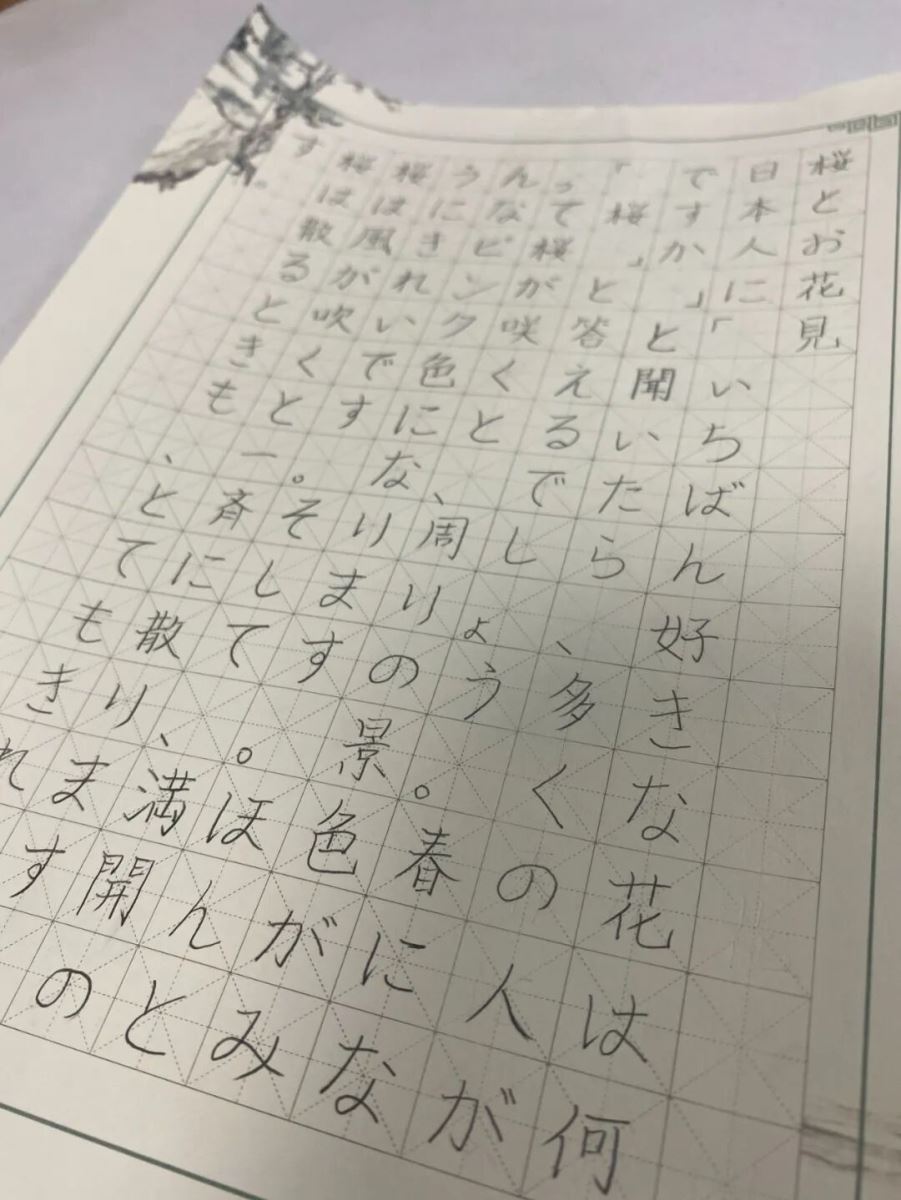 桜とお花見
日本人に「いちばん好きな花は何
ですか」と聞いたら、多くの人が
「桜」と答えるでしょう。春にな
って桜が咲くと、周りの景色がみ
んなピンク色になります。ほんと
うにきれいです。そして、満開の
桜は風が吹くと一斉に散ります
桜は散るときも、とてもきれ
す。